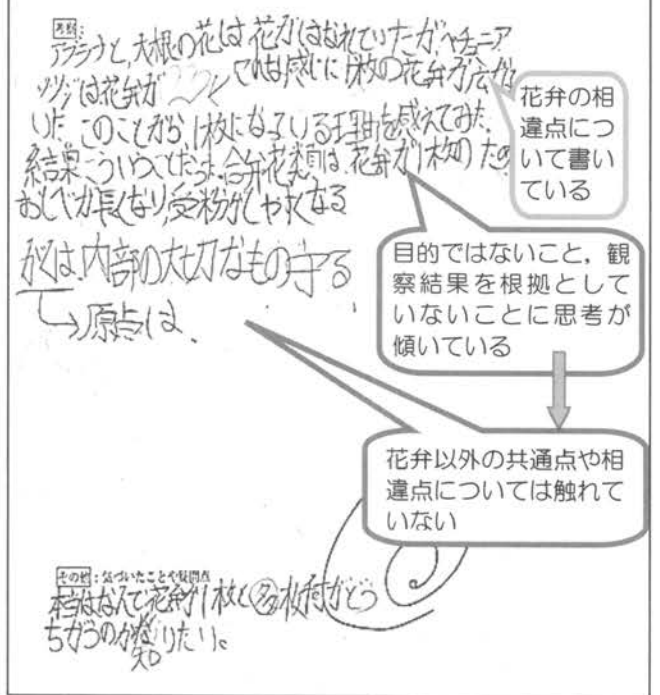 考察：
アブラナと、大根の花は花弁がはなれていたが、ペチュニア
ツツジは花弁が てれは感じに1枚の花弁が広が
いた。このことから、1枚になっている理由を感えてみた。
結果こういうことだった。合弁花類は、花弁が1枚の
おしべが長くなり、受粉がしやすくなる
がくは、内部の大切なもの守る
→原点は、
花弁の相
違点につ
いて書い
ている
目的ではないこと，観
察結果を根拠として
いないことに思考が
傾いている
花弁以外の共通点や相
違点については触れて
いない
その他：気づいたことや疑問点
本当はなんで花弁が1枚と多枚付がどう
ちがうのか知りたい。